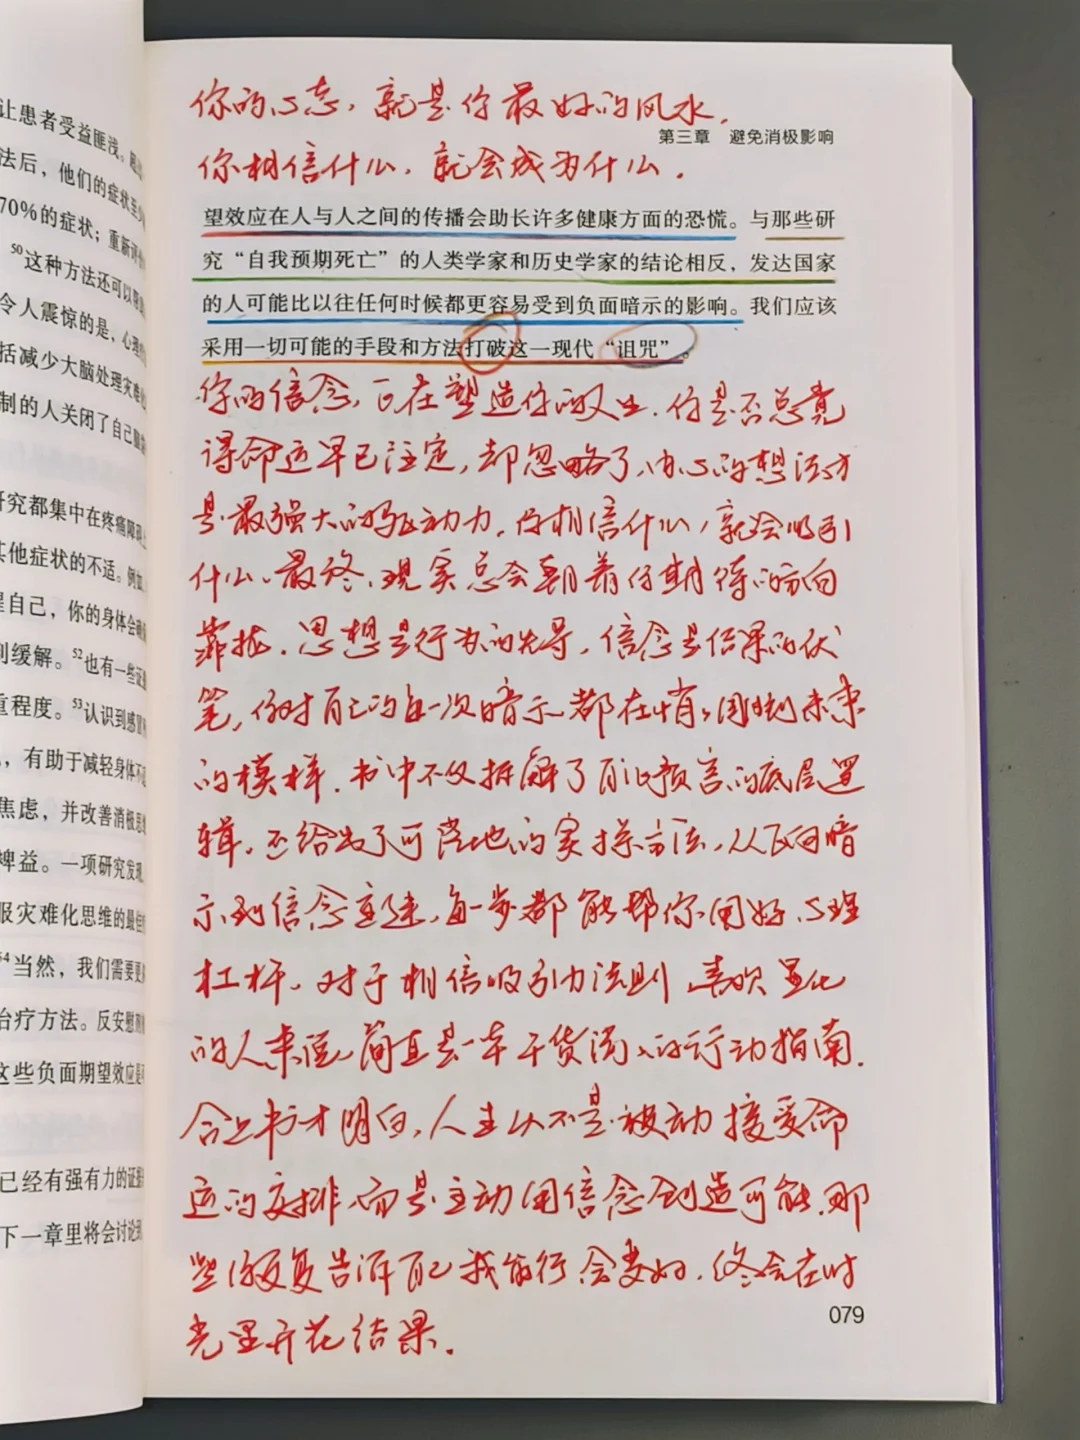 让患者受益匪浅。
法后，他们的症状至少
70%的症状；重新评
50这种方法还可以帮
令人震惊的是，心理
括减少大脑处理灾难
制的人关闭了自己
研究都集中在疼痛障碍
其他症状的不适。例如，
醒自己，你的身体会
到缓解。52也有一些证
重程度。53认识到感
，有助于减轻身体不
焦虑，并改善消极思
裨益。一项研究发现，
服灾难化思维的最佳
54当然，我们需要更
治疗方法。反安慰剂
这些负面期望效应是
已经有强有力的证据
下一章里将会讨论
你的心态，就是你最好的风水，
第三章 避免消极影响
你相信什么，就会成为什么。
望效应在人与人之间的传播会助长许多健康方面的恐慌。与那些研
究“自我预期死亡”的人类学家和历史学家的结论相反，发达国家
的人可能比以往任何时候都更容易受到负面暗示的影响。我们应该
采用一切可能的手段和方法打破这一现代“诅咒”。
你的信念，正在塑造你的人生．你是否总觉
得命运早已注定，却忽略了，内心的想法才
是最强大的驱动力，你相信什么，就会吸引
什么、最终，现实总会朝着你期待的方向
靠拢．思想是行为的先导，信念是结果的伏
笔，你对自己的每一次暗示都在悄悄刻未来
的模样．书中不仅拆解了自证预言的底层逻
辑，还给出了可落地的实操方法，从反向暗
示到信念重建，每一步都能帮你用好心理
杠杆．对于相信吸引力法则 喜欢显化
的人来说，简直是一本干货满满的行动指南．
合上书才明白，人生从不是被动接受命
运的安排，而是主动用信念创造可能．那
些你反复告诉自己我能行，会变好，终会在时
光里开花结果．
079